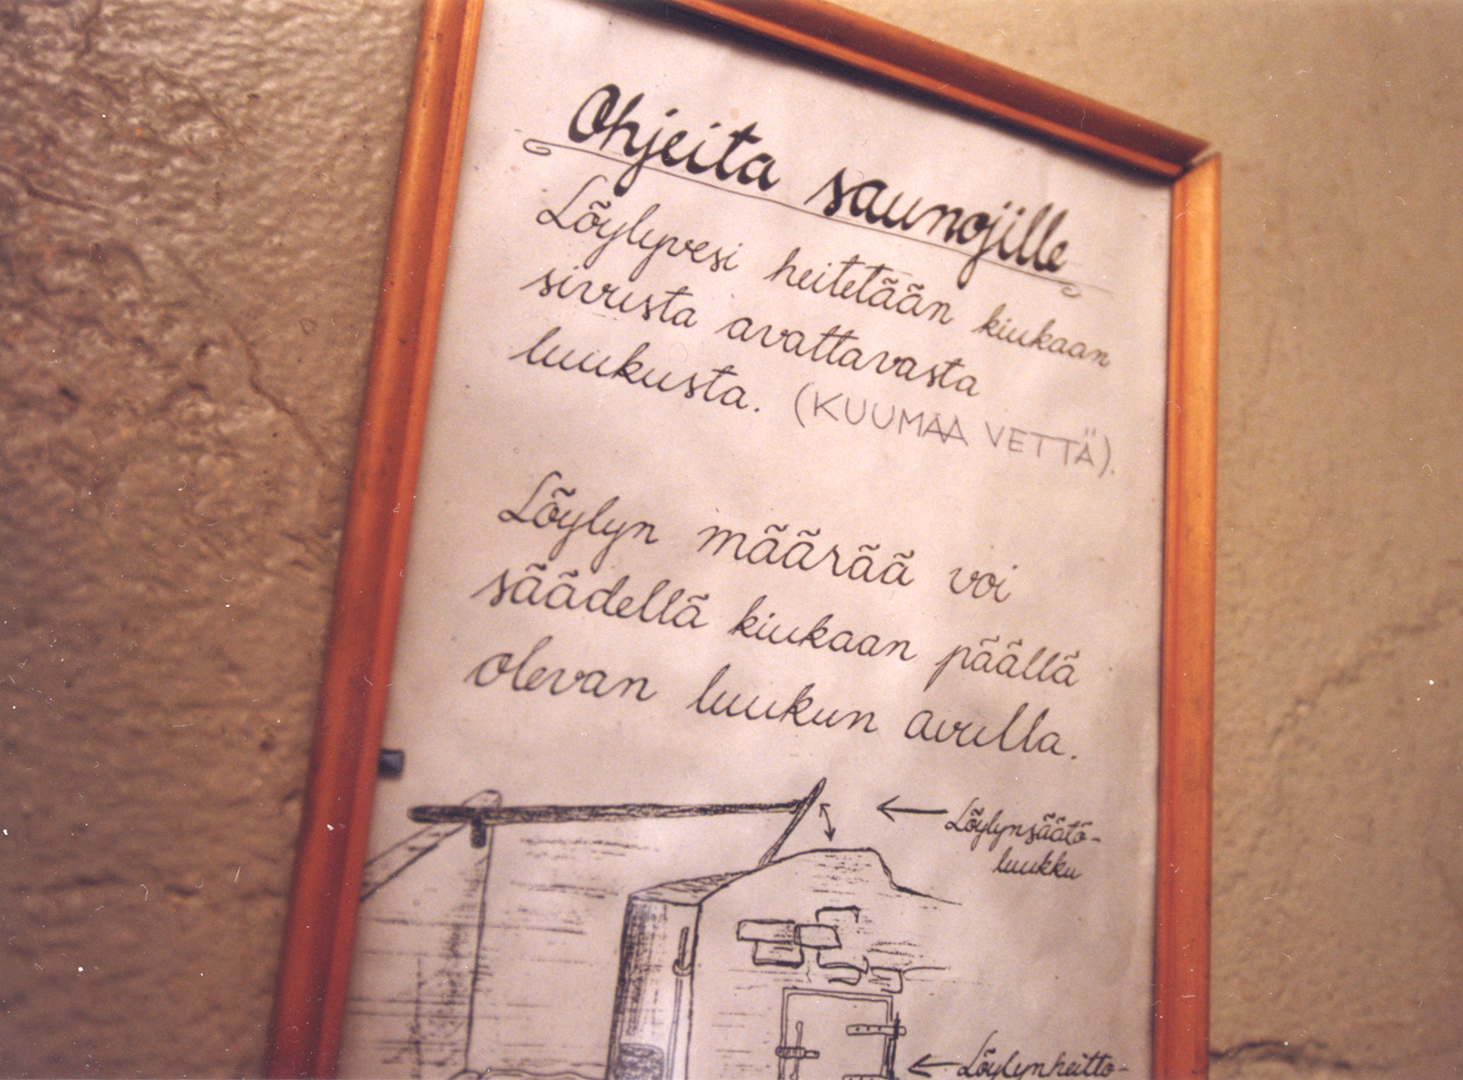 Ohjeita saunojille
Löylyvesi heitetään kiukaan
sivusta avattavasta
luukusta. (KUUMAA VETTÄ).
Löylyn määrää voi
säädellä kiukaan päällä
olevan luukun avulla.
Löylynsäätö-
luukku
Löylynheitto-